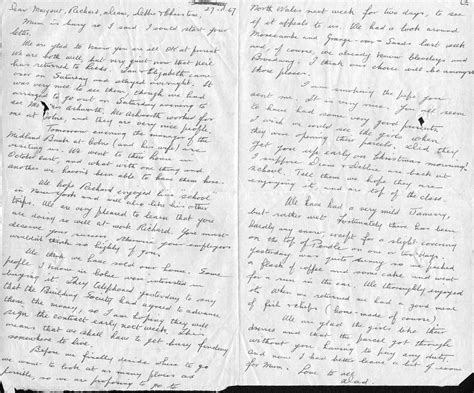 Dear Margaret, Richard, Diane, Debbie & Christine 29-1-67
Mum is busy so I said I would start your
letter.
We are glad to know you are all OK at present
we are both well, but very quiet now that
has returned to Leeds. Elizabeth came
over on Saturday and stayed overnight. It
was very nice to see them, though we had
arranged to go out on Saturday evening to
see Mr. Ashworth. Mr Ashworth worked for
me at Colne, and they are very nice people.
Tomorrow evening the manager of
Midland Bank at Colne (and his wife) are
visiting us. We went to their home in
October last, and what with one thing and
another we haven't been able to have them here.
We hope Richard enjoyed his school
in New-York and will also like his other
trips. We are very pleased to learn that you
are doing so well at work Richard. You must
deserve your success otherwise your employers
wouldn't think so highly of you.
We think we have sold our house. Some
people I know in Colne was interested in
buying it. They telephoned yesterday to say
that the Building Society had agreed to advance
them the money, so I am hoping they will
sign the contract early next week. This
means that we shall have to get busy finding
somewhere to live.
Before we finally decide where to go
we want to look at as many places as
possible, so we are proposing to go to
North Wales next week for two days, to see
if it appeals to us. We had a look around
Morecambe and Grange-over-Sands last week
and, of course, we already know Blackpool and
Broadway. I think our choice will be among
those places.
I am smoking the pipe you
sent me. It is very nice. You all seem
to have had some very good presents.
I wish we could see the girls when
they were opening their parcels. Did they
get you up early on Christmas morning?
I suppose Diane & Debbie are back at
school. Tell them we hope they are
enjoying it, and are top of the class.
We have had a very mild January,
but rather wet. Fortunately there has been
hardly any snow except for a slight covering
on the top of Pendle on one or two days.
Yesterday was quite so we packed
a flask of coffee and some cake and went
for a run in the car. We thoroughly enjoyed
it. When we returned we had a good meal
of fish & chips (home-made of course)
We are glad the girls like their
dresses and that the parcel got through
without you having to pay any duty
and now I had better leave a bit of room
for Mum. Love to all
Dad.